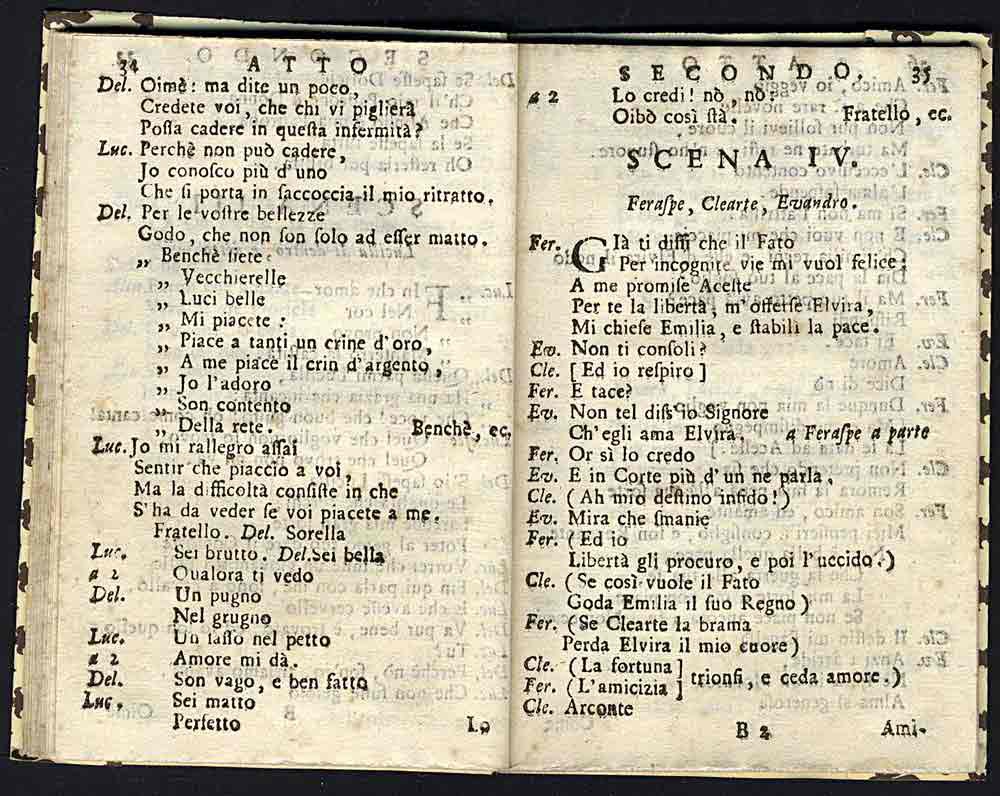 34 ATTO
Del. Oimè: ma dite un poco,
Credete voi, che chi vi piglierà
Poſſa cadere in queſta infermità?
Luc. Perchè non può cadere,
Jo conoſco più d'uno
Che ſi porta in ſaccoccia il mio ritratto.
Del. Per le voſtre bellezze
Godo, che non ſon ſolo ad eſſer matto.
„ Benchè ſiete
„ Vecchierelle
„ Luci belle
„ Mi piacete:
„ Piace a tanti un crine d'oro,
„ A me piace il crin d'argento,
„ Jo l'adoro
„ Son contento
„ Della rete. Benchè, ec.
Luc. Jo mi rallegro aſſai
Sentir che piaccio a voi,
Ma la difficoltà conſiſte in che
S'ha da veder ſe voi piacete a me.
Fratello. Del. Sorella
Luc. Sei brutto. Del. Sei bella
a 2 Qualora ti vedo
Del. Un pugno
Nel grugno
Luc. Un ſaſſo nel petto
a 2 Amore mi dà.
Del. Son vago, e ben fatto
Luc. Sei matto
Perfetto Lo
SECONDO. 35
a 2 Lo credi! nò, nò:
Oibò così ſtà. Fratello, ec.
SCENA IV.
Feraſpe, Clearte, Evandro.
Fer. Già ti diſſi che il Fato
Per incognite vie mi vuol felice;
A me promiſe Aceſte
Per te la libertà, m'offerſe Elvira,
Mi chieſe Emilia, e ſtabilì la pace.
Ev. Non ti conſoli?
Cle. [Ed io reſpiro]
Fer. E tace?
Ev. Non tel diſs'io Signore
Ch'egli ama Elvira. a Feraſpe a parte
Fer. Or sì lo credo
Ev. E in Corte più d'un ne parla.
Cle. (Ah mio deſtino infido!)
Ev. Mira che ſmanie
Fer. (Ed io
Libertà gli procuro, e poi l'uccido.)
Cle. (Se così vuole il Fato
Goda Emilia il ſuo Regno)
Fer. (Se Clearte la brama
Perda Elvira il mio cuore)
Cle. (La fortuna] trionfi, e ceda amore.)
Fer. (L'amicizia]
Cle. Arconte
B 2 Ami-